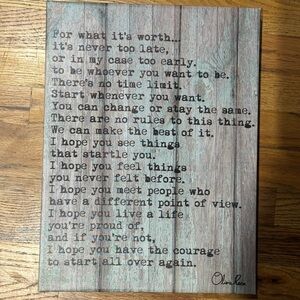 For what it's worth...
it's never too late,
or in my case too early.
to be whoever you want to be.
There's no time limit.
Start whenever you want.
You can change or stay the same.
There are no rules to this thing.
We can make the best of it.
I hope you see things
that startle you.
I hope you feel things
you never felt before.
I hope you meet people who
have a different point of view.
I hope you live a life
you're proud of,
and if you're not,
I hope you have the courage
to start all over again.